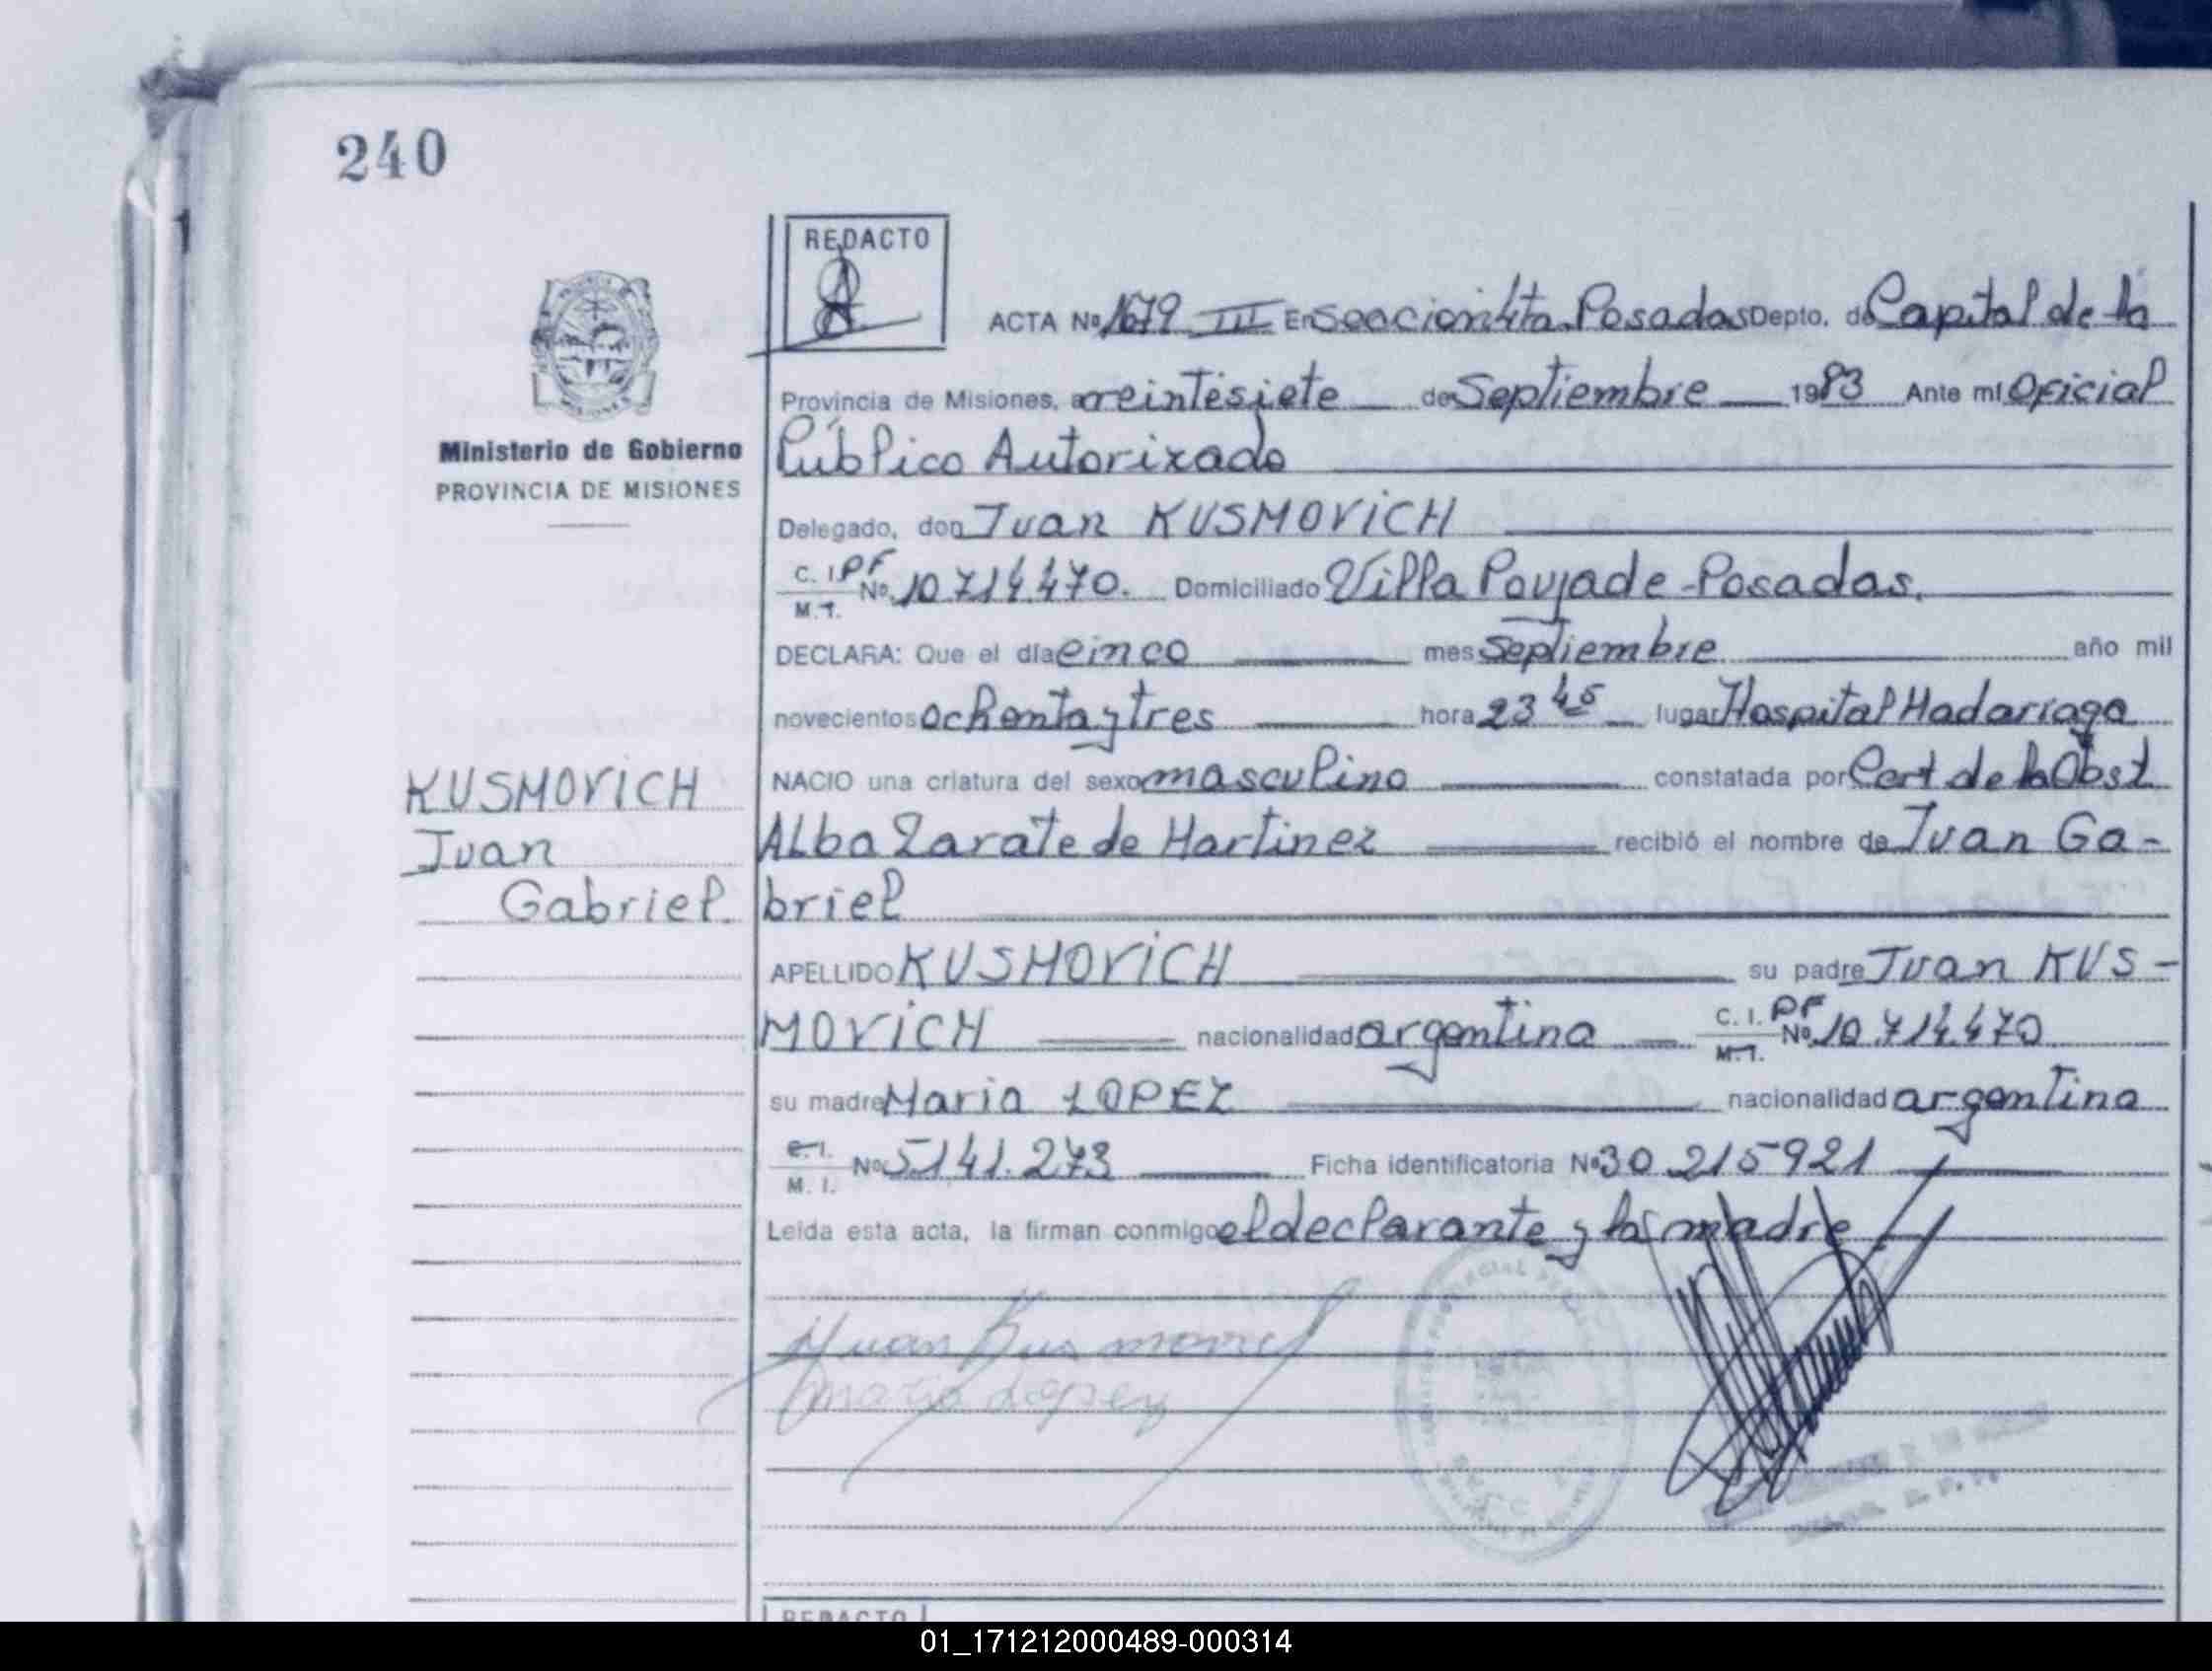 240
REDACTO
ACTA Nº 1679 III En Seccion 4ta. Posadas Depto. de Capital de la
Provincia de Misiones, a veintisiete de Septiembre 1983 Ante mi Oficial
Ministerio de Gobierno
PROVINCIA DE MISIONES
Público Autorizado
Delegado, don Juan KUSMOVICH
C. I. PF
M. I. Nº 10.714.470. Domiciliado Villa Poujade - Posadas.
DECLARA: Que el día cinco mes Septiembre año mil
novecientos ochenta y tres hora 23 45 lugar Hospital Madariaga
NACIO una criatura del sexo masculino constatada por Cert de la Obst
KUSMOVICH
Juan
Gabriel.
Alba Zarate de Martinez recibió el nombre de Juan Ga-
briel
APELLIDO KUSMOVICH su padre Juan KUS-
MOVICH nacionalidad argentina C. I. PF M. I. Nº 10.714.470
su madre Maria LOPEZ nacionalidad argentina
C. I. M. I. Nº 5.141.273 Ficha identificatoria Nº 30.215921
Leída esta acta, la firman conmigo el declarante y la madre
Juan Kusmovich
Maria Lopez
REDACTO
01_171212000489-000314